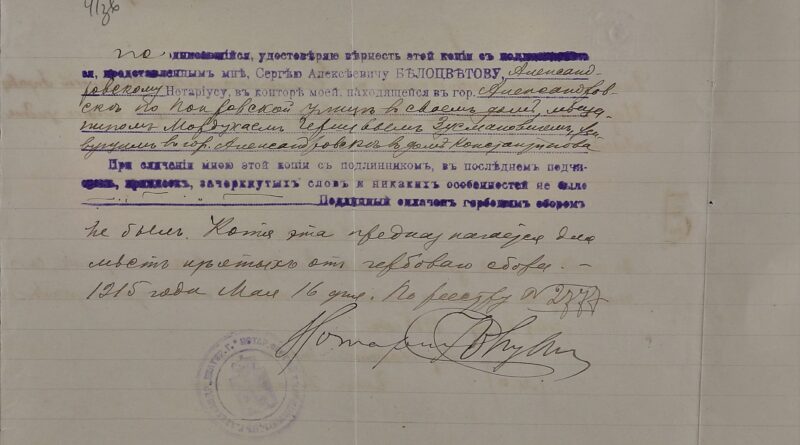 9126
подписавшійся, удостовѣряю вѣрность этой копіи съ подлинникомъ
ея, представленнымъ мнѣ, Сергѣю Алексѣевичу БѢЛОЦВѢТОВУ, Александ-
ровскому Нотаріусу, въ конторѣ моей, находящейся въ гор. Александров-
скѣ по Покровской улицѣ въ своемъ домѣ, мѣща-
ниномъ Мордухаемъ Зусмановичемъ, жи-
вущимъ въ гор. Александровскѣ въ домѣ Константинова
При сличеніи мною этой копіи съ подлинникомъ, въ послѣднемъ подчи-
стокъ, приписокъ, зачеркнутыхъ словъ и никакихъ особенностей не было
Подлинный оплаченъ гербовымъ сборомъ
не былъ. Копія эта предназначается для
мѣстъ изъятыхъ отъ гербоваго сбора. —
1915 года Мая 16 дня. По реестру № 2777
Нотаріусъ